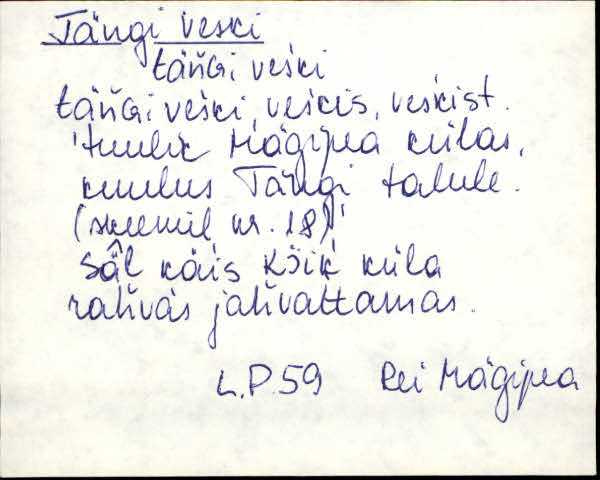 Tängi veski
täńGi veśki
täńGi veśki, veśkis, veśkist.
'tuulik Mägipea külas,
kuulus Tängi talule.
(skeemil nr. 18)'
säl käis kõik küla
rahvas jahvattamas.
L.P. 59 Rei Mägipea